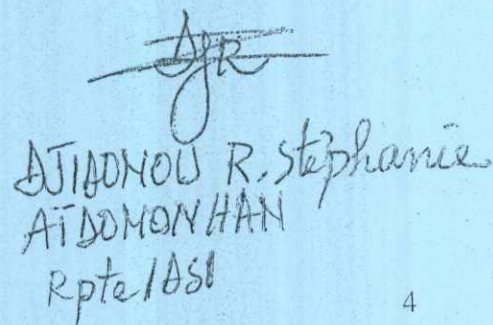 DJR
DJIDOMOU R. Stéphanie
AÏDOMONHAN
Rpte/ASI
4